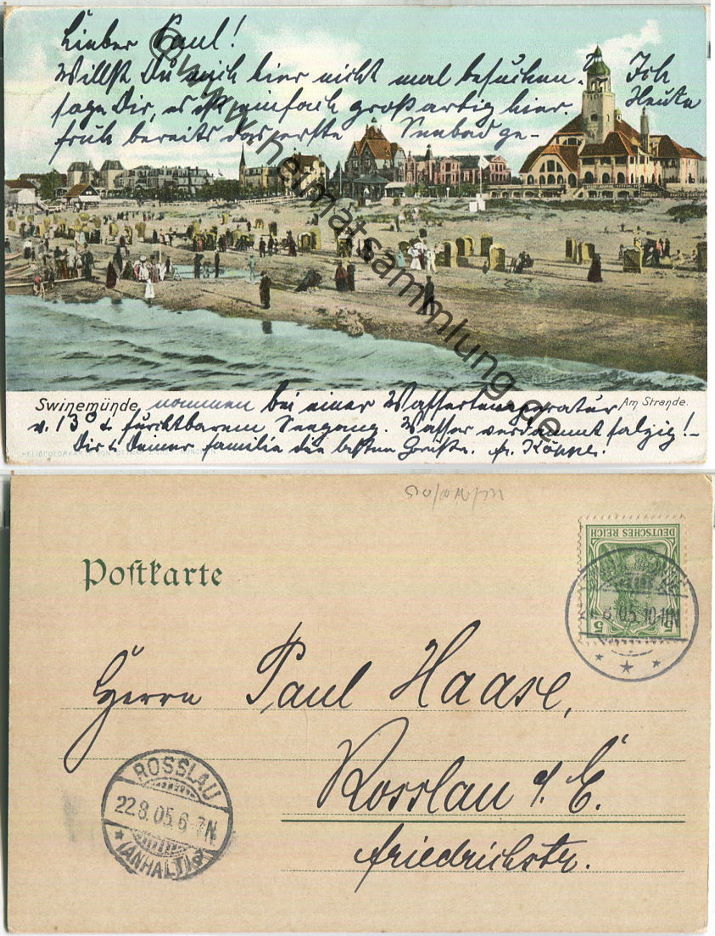 Lieber Paul!
Willst Du mich hier nicht mal besuchen? Ich
sage Dir, es ist einfach großartig hier. Heute
früh bereits das erste Seebad ge-
Swinemünde
Am Strande.
nommen bei einer Wassertemperatur
v. 13° & furchtbarem Seegang. Wasser verdammt salzig!-
Dir & Deiner Familie die besten Grüße. Fr.
© www.heimatsammlung.de
Postkarte
DEUTSCHES REICH
5 5
8.05.10-11N
Herrn Paul Haase,
Rosslau a/E.
Friedrichstr.
ROSSLAU
22.8.05.6-7N.
(ANHALT)